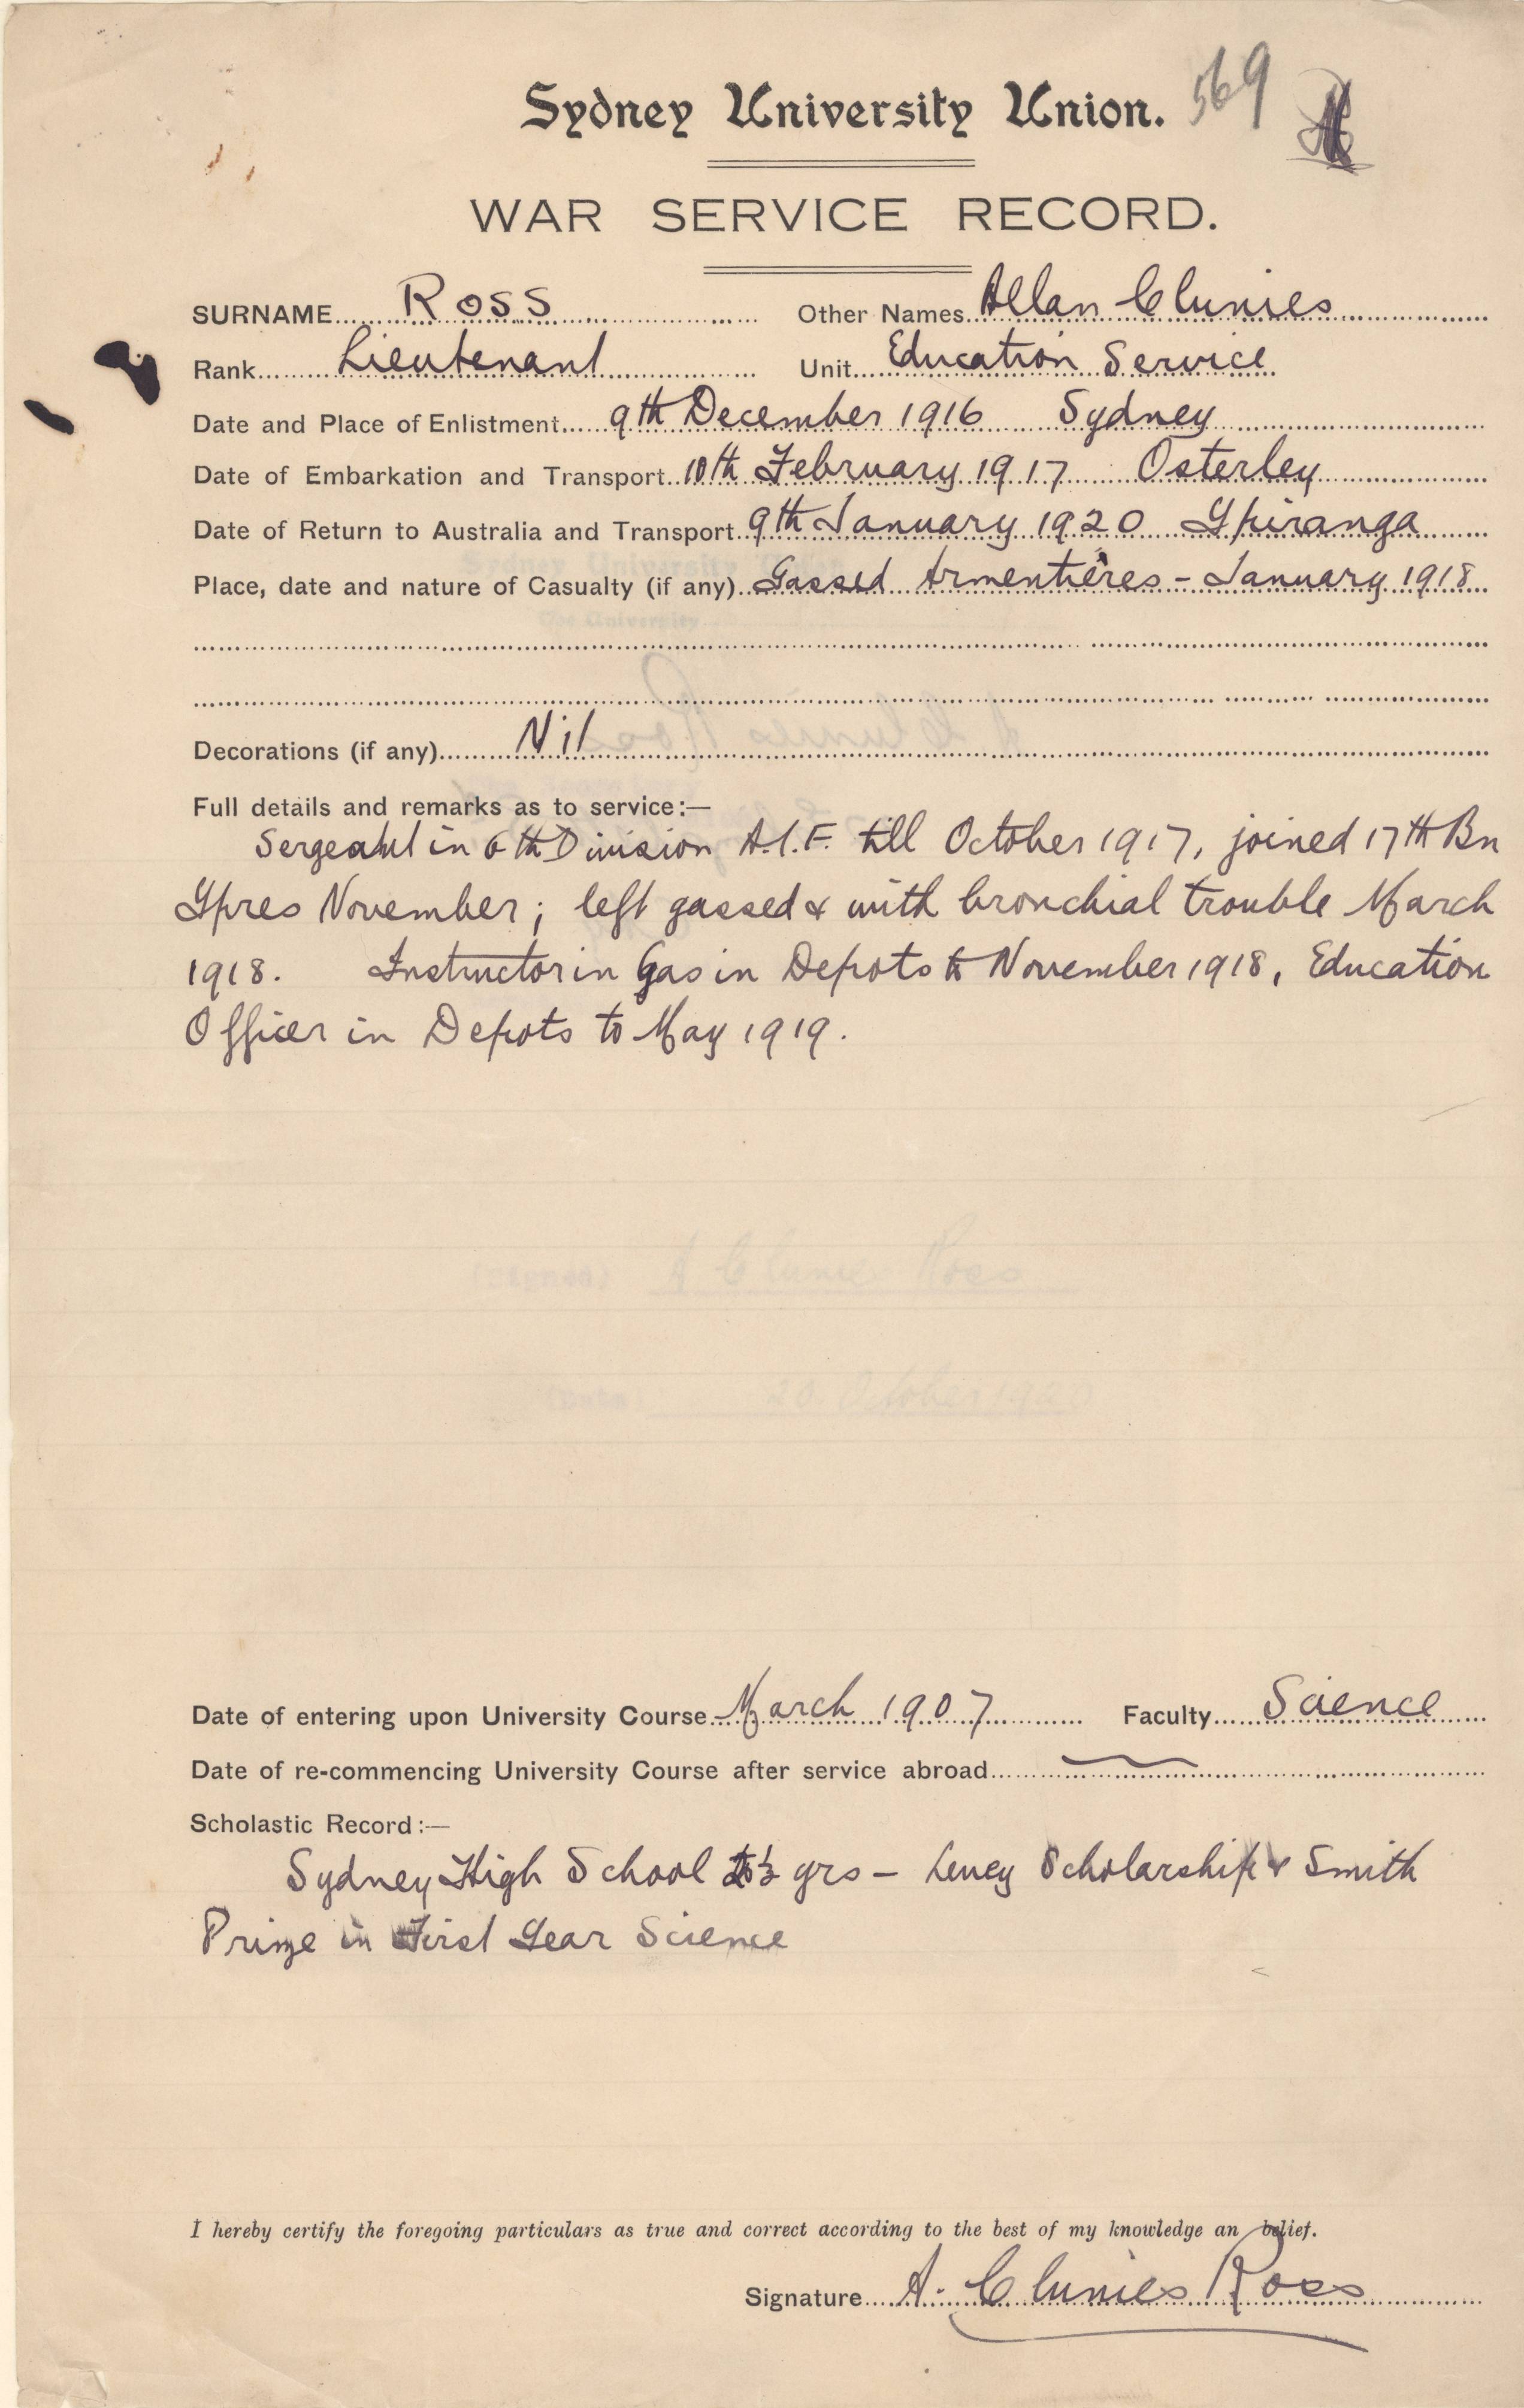 Sydney University Union. 569
WAR SERVICE RECORD.
SURNAME Ross Other Names Allan Clunies
Rank Lieutenant Unit Education Service
Date and Place of Enlistment 9th December 1916 Sydney
Date of Embarkation and Transport 10th February 1917 Osterley
Date of Return to Australia and Transport 9th January 1920 Ypiranga
Place, date and nature of Casualty (if any) Gassed Armentières - January 1918
Decorations (if any) Nil
Full details and remarks as to service:—
Sergeant in 6th Division A.I.F. till October 1917, joined 17th Bn
Ypres November; left gassed & with bronchial trouble March
1918. Instructor in Gas in Depots to November 1918, Education
Officer in Depots to May 1919.
(Signed) A Clunies Ross
(Date) 20 October 1920
Date of entering upon University Course March 1907 Faculty Science
Date of re-commencing University Course after service abroad —
Scholastic Record:—
Sydney High School yrs – Levey Scholarship & Smith
Prize in First Year Science
I hereby certify the foregoing particulars as true and correct according to the best of my knowledge an belief.
Signature A. Clunies Ross